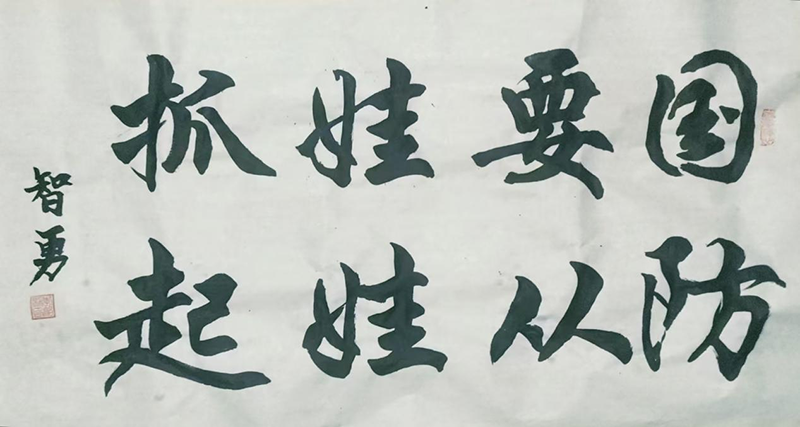 国防
要从
娃娃
抓起
智勇